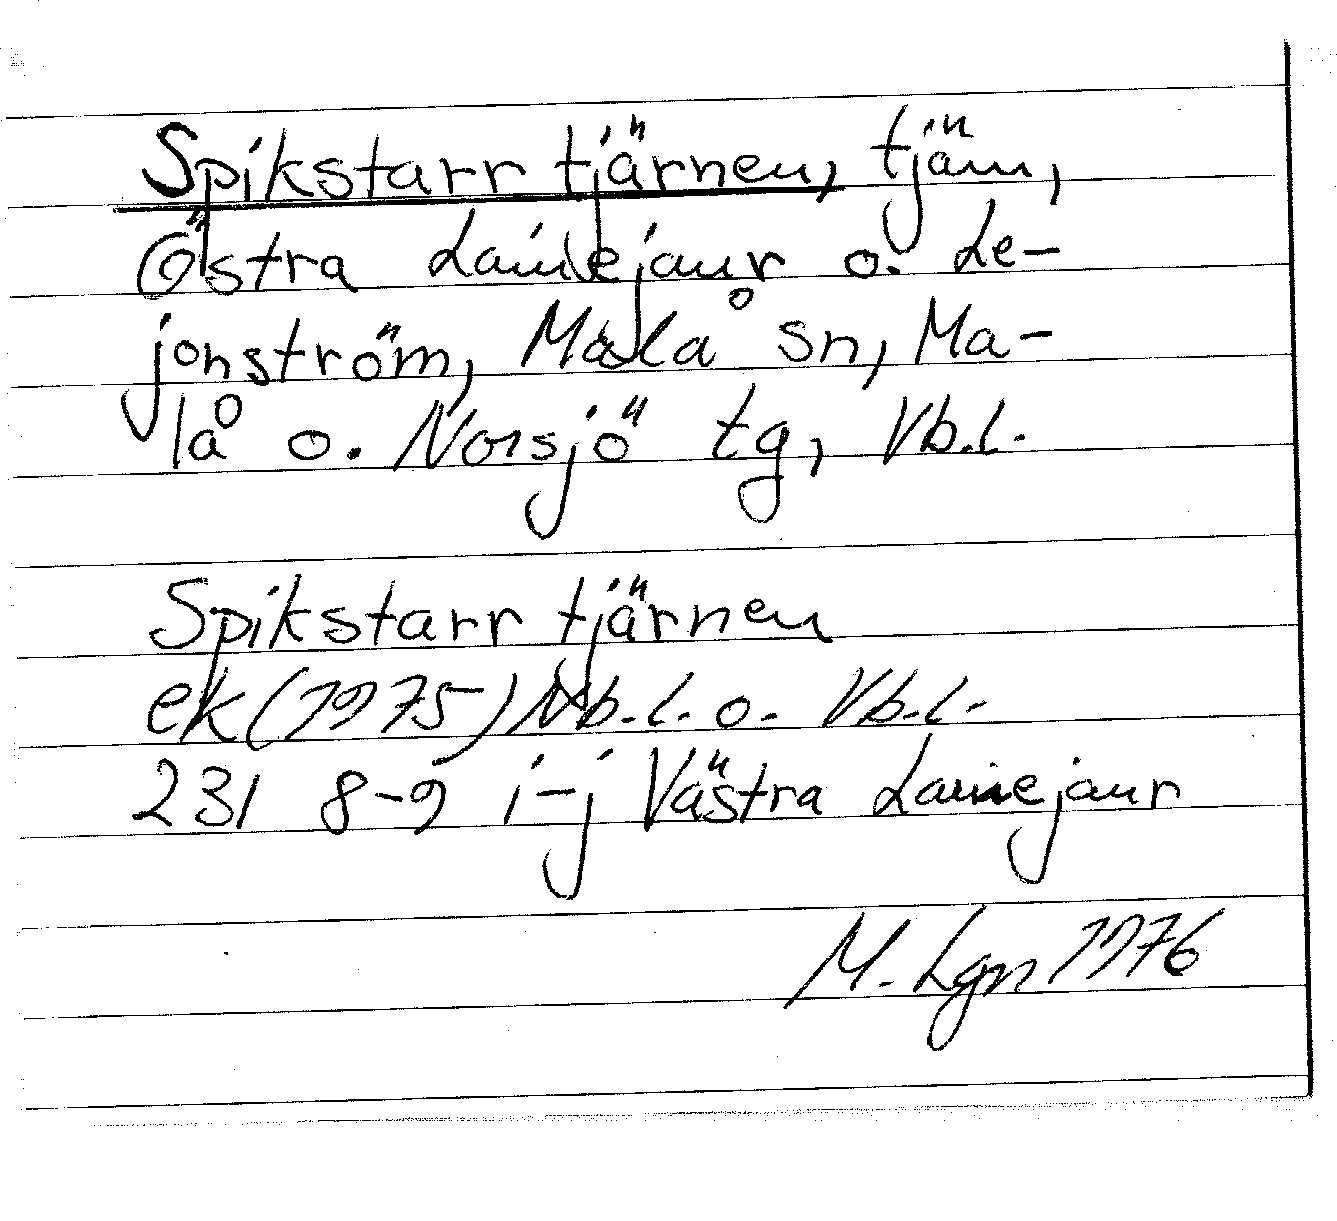 Spikstarrtjärnen, tjärn,
Östra Lainejaur o. Le-
jonström, Malå sn, Ma-
lå o. Norsjö tg, Vb.l.
Spikstarrtjärnen
ek (1975) Nb.l. o. Vb.l.
231 8-9 i-j Västra Lainejaur
M. Lgn 1976